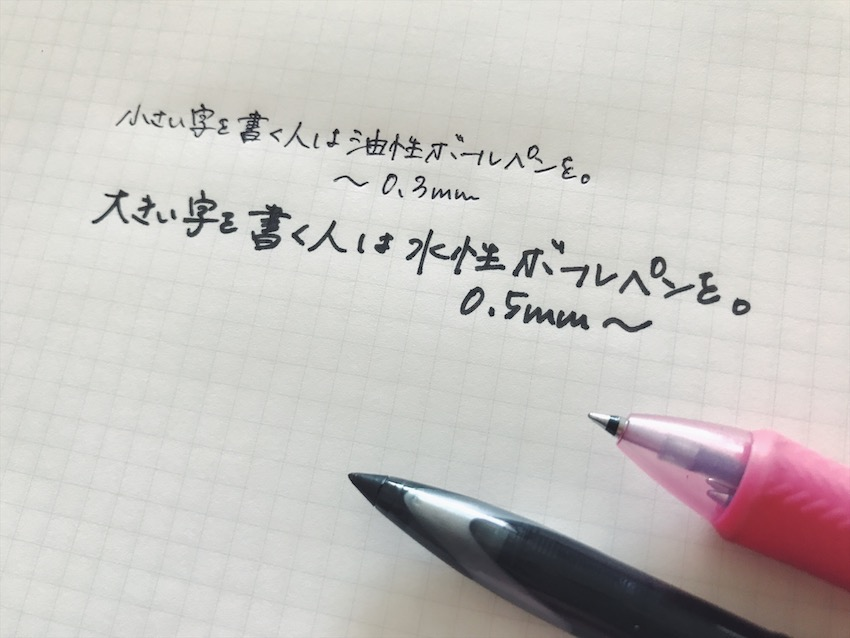 小さい字を書く人は油性ボールペンを。
～0.3mm
大きい字を書く人は水性ボールペンを。
0.5mm～